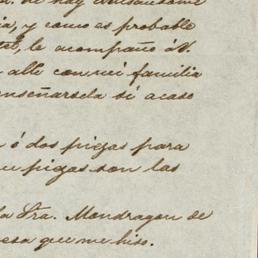 de hoy
ia, y como es probable
le acompaño á V.
alle con mi familia
enseñarsela si acaso
ó dos piezas para
piezas son las
la Sra. Mondragon de
esa que me hizo.